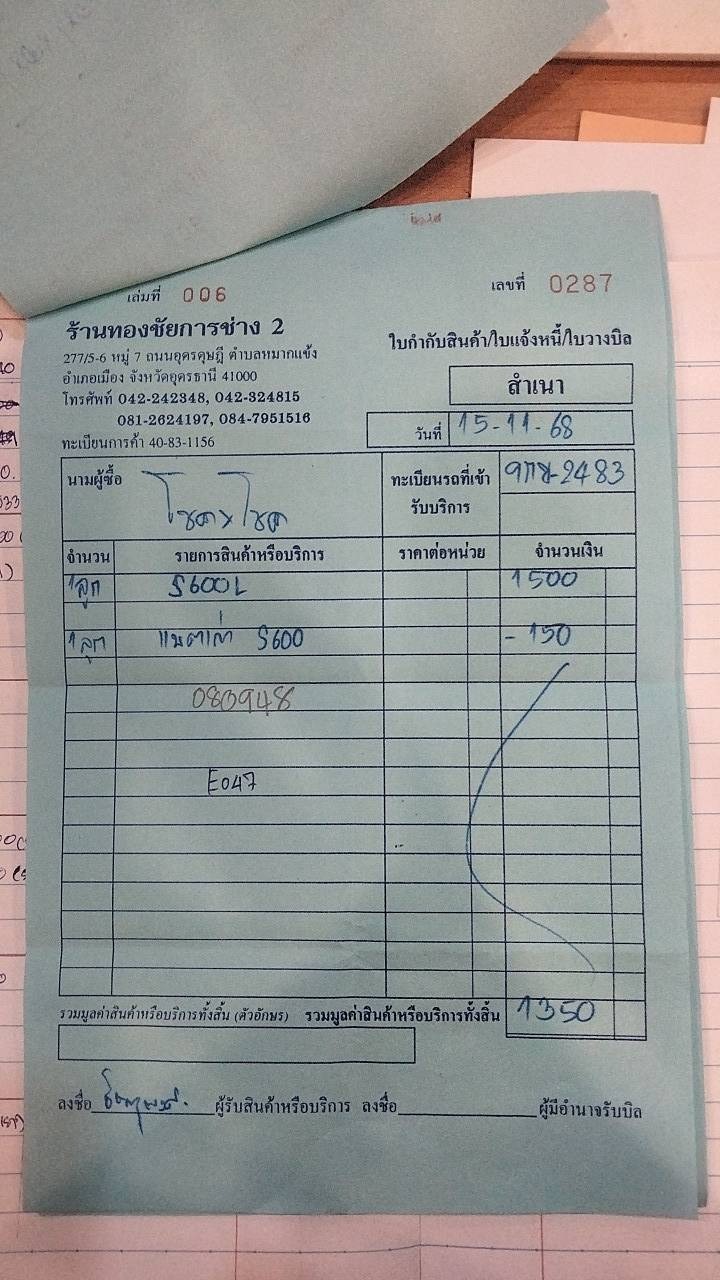 เล่มที่ 006
เลขที่ 0287
ร้านทองชัยการช่าง 2
277/5-6 หมู่ 7 ถนนอุดรดุษฎี ตำบลหมากแข้ง
อำเภอเมือง จังหวัดอุดรธานี 41000
โทรศัพท์ 042-242348, 042-324815
081-2624197, 084-7951516
ทะเบียนการค้า 40-83-1156
ใบกำกับสินค้า/ใบแจ้งหนี้/ใบวางบิล
สำเนา
วันที่ 15-11-68
นามผู้ซื้อ โชค x โชค
ทะเบียนรถที่เข้ารับบริการ 2483
จำนวน รายการสินค้าหรือบริการ ราคาต่อหน่วย จำนวนเงิน
1ลูก S600L 1500
1ลูก แบตเก่า S600 - 150
080948
E047
รวมมูลค่าสินค้าหรือบริการทั้งสิ้น (ตัวอักษร) รวมมูลค่าสินค้าหรือบริการทั้งสิ้น 1350
ลงชื่อ ผู้รับสินค้าหรือบริการ ลงชื่อ ผู้มีอำนาจรับบิล